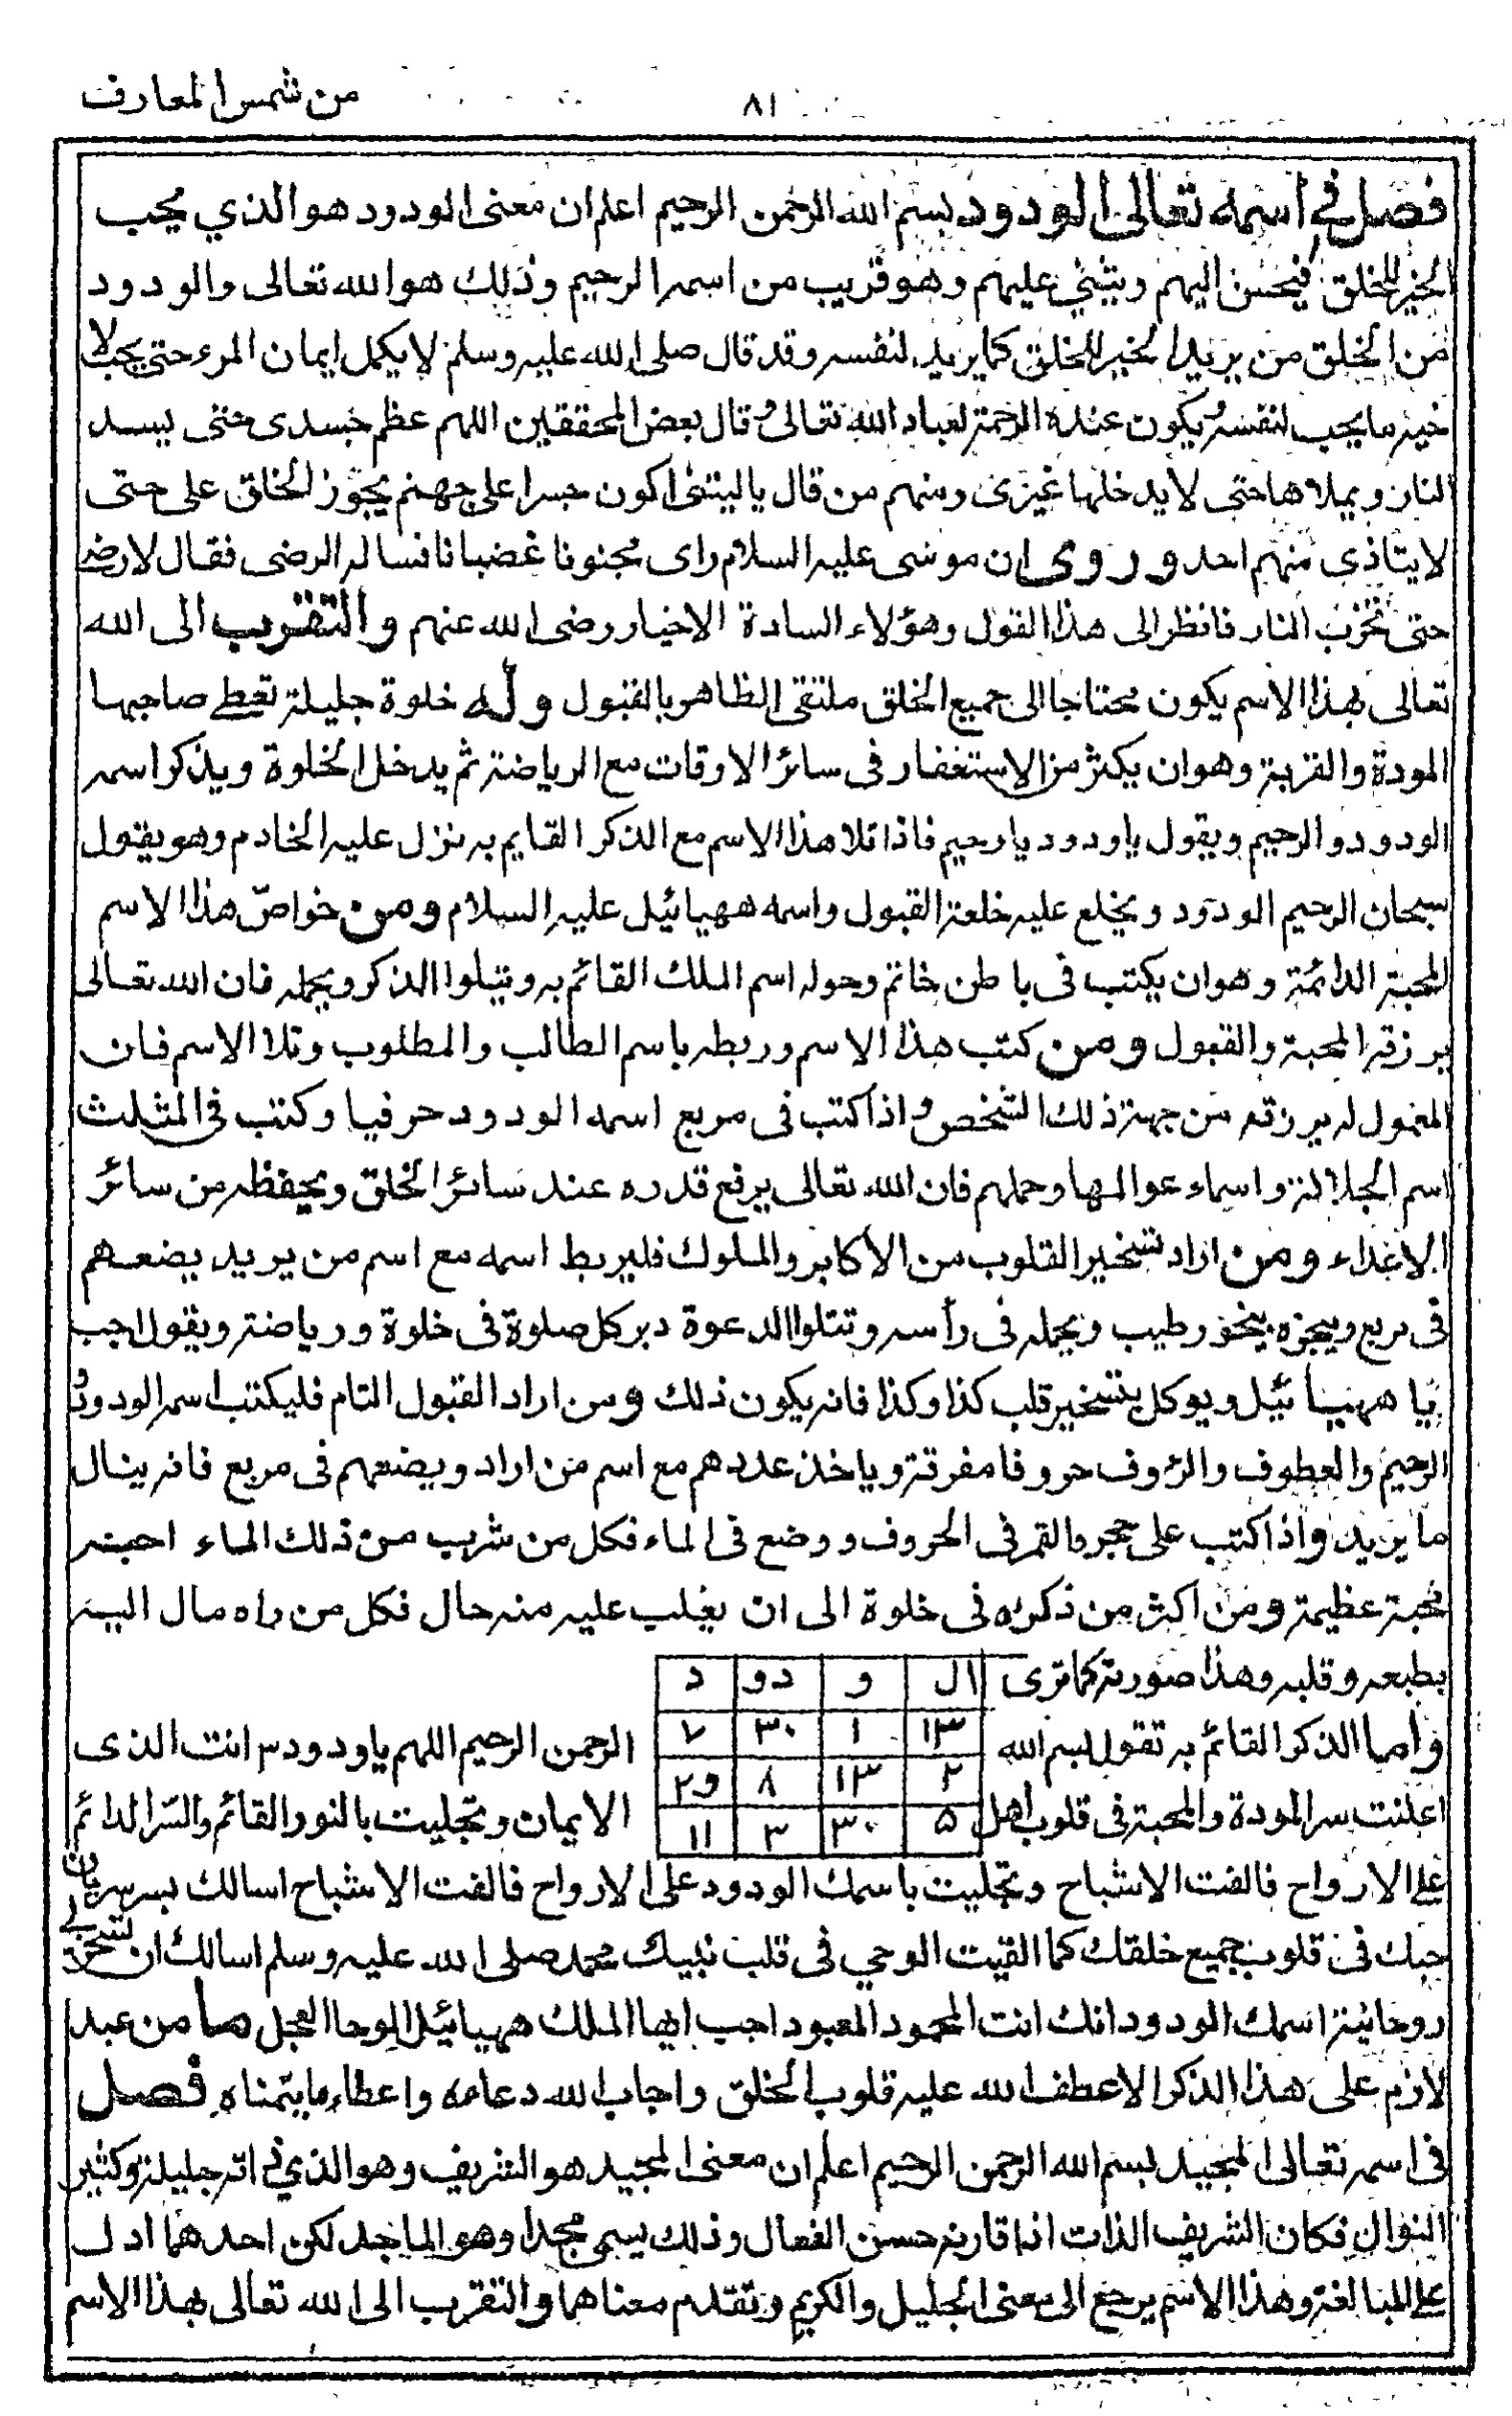 من شمس المعارف
٨١
فصل في اسمه تعالى الودود بسم الله الرحمن الرحيم اعلم ان معنى الودود هو الذي يحب
الخير للخلق فيحسن اليهم ويثني عليهم وهو قريب من اسمه الرحيم وذلك هو الله تعالى والودود
من الخلق من يريد الخير للخلق كما يريد لنفسه وقد قال صلى الله عليه وسلم لا يكمل ايمان المرء حتى يحب لا
خيه ما يحب لنفسه ويكون عنده الرحمة لعباد الله تعالى وقال بعض المحققين اللهم عظم جسدى حتى يسد
النار ويملاها حتى لا يدخلها غيرى ومنهم من قال يا ليتنى اكون جسرا على جهنم يجوز الخلق على حتى
لا يتاذى منهم احد وروى ان موسى عليه السلام راى مجنونا غضبانا فساله الرضى فقال لا ارضى
حتى تخرب النار فانظر الى هذا القول وهؤلاء السادة الاخيار رضى الله عنهم والتقرب الى الله
تعالى بهذا الاسم يكون محتاجا الى جميع الخلق ملتقى الظاهر بالقبول وله خلوة جليلة تعطى صاحبها
المودة والقربة وهو ان يكثر من الاستغفار فى سائر الاوقات مع الرياضة ثم يدخل الخلوة ويذكر اسمه
الودود والرحيم ويقول يا ودود يا رحيم فاذا تلا هذا الاسم مع الذكر القايم به نزل عليه الخادم وهو يقول
سبحان الرحيم الودود ويخلع عليه خلعة القبول واسمه ههيائيل عليه السلام ومن خواص هذا الاسم
المحبة الدائمة وهو ان يكتب فى باطن خاتم وحوله اسم الملك القائم به ويتلوا الذكر ويحمله فان الله تعالى
يرزقه المحبة والقبول ومن كتب هذا الاسم وربطه باسم الطالب والمطلوب وتلا الاسم فان
المعمول له يرزقه من جهة ذلك الشخص واذا كتب فى مربع اسمه الودود حرفيا وكتب فى المثلث
اسم الجلالة واسماء عوالمها وحملهم فان الله تعالى يرفع قدره عند سائر الخلق ويحفظه من سائر
الاعداء ومن اراد تسخير القلوب من الاكابر والملوك فليربط اسمه مع اسم من يريد يضعهم
فى مربع ويبخره ببخور طيب ويحمله فى رأسه وتتلوا الدعوة دبر كل صلوة فى خلوة ورياضة ويقول اجب
يا ههيائيل ويوكل بتسخير قلب كذا وكذا فانه يكون ذلك ومن اراد القبول التام فليكتب اسمه الودود و
الرحيم والعطوف والرؤف حروفا مفرقة وياخذ عددهم مع اسم من اراد ويضعهم فى مربع فانه ينال
ما يريد واذا كتب على حجر والقمر فى الحروف ووضع فى الماء فكل من شرب من ذلك الماء احبته
محبة عظيمة ومن اكثر من ذكره فى خلوة الى ان يغلب عليه منه حال فكل من راه مال اليه
بطبعه وقلبه وهذا صورته كما ترى
ال و دو د
١٣ ١ ٣٠ ٧
٢ ١٣ ٨ و٢
٥ ٣٠ ٣ ١١
واما الذكر القائم به تقول بسم الله الرحمن الرحيم اللهم يا ودود ٣ انت الذى
اعلنت سر المودة والمحبة فى قلوب اهل الايمان وتجليت بالنور القائم والسر الدائم
على الارواح فالفت الاشباح وتجليت باسمك الودود على الارواح فالفت الاشباح اسالك بسر سريان
حبك فى قلوب جميع خلقك كما القيت الوحي فى قلب نبيك محمد صلى الله عليه وسلم اسالك ان تسخر لى
روحانية اسمك الودود انك انت المحمود المعبود اجب ايها الملك ههيائيل الوحا العجل ما من عبد
لازم على هذا الذكر الا عطف الله عليه قلوب الخلق واجاب الله دعاءه واعطاه ما يتمناه فصل
فى اسمه تعالى المجيد بسم الله الرحمن الرحيم اعلم ان معنى المجيد هو الشريف وهو الذي ذاته جليلة وكثير
النوال فكان الشريف الذات اذا قارنه حسن الفعال وذلك يسمى مجدا وهو الماجد لكن احدهما ادل
على المبالغة وهذا الاسم يرجع الى معنى الجليل والكريم وتقدم معناهما والتقرب الى الله تعالى بهذا الاسم